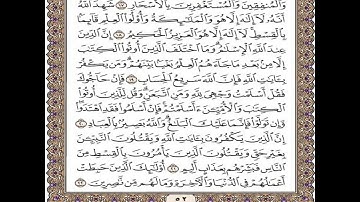 وَٱلْمُنفِقِينَ وَٱلْمُسْتَغْفِرِينَ بِٱلْأَسْحَارِ ١٧ شَهِدَ ٱللَّهُ
أَنَّهُۥ لَآ إِلَٰهَ إِلَّا هُوَ وَٱلْمَلَٰٓئِكَةُ وَأُو۟لُوا۟ ٱلْعِلْمِ قَآئِمًۢا
بِٱلْقِسْطِ لَآ إِلَٰهَ إِلَّا هُوَ ٱلْعَزِيزُ ٱلْحَكِيمُ ١٨ إِنَّ ٱلدِّينَ
عِندَ ٱللَّهِ ٱلْإِسْلَٰمُ وَمَا ٱخْتَلَفَ ٱلَّذِينَ أُوتُوا۟ ٱلْكِتَٰبَ
إِلَّا مِنۢ بَعْدِ مَا جَآءَهُمُ ٱلْعِلْمُ بَغْيًۢا بَيْنَهُمْ وَمَن يَكْفُرْ
بِـَٔايَٰتِ ٱللَّهِ فَإِنَّ ٱللَّهَ سَرِيعُ ٱلْحِسَابِ ١٩ فَإِنْ حَآجُّوكَ
فَقُلْ أَسْلَمْتُ وَجْهِىَ لِلَّهِ وَمَنِ ٱتَّبَعَنِ وَقُل لِّلَّذِينَ أُوتُوا۟
ٱلْكِتَٰبَ وَٱلْأُمِّيِّـۧنَ ءَأَسْلَمْتُمْ فَإِنْ أَسْلَمُوا۟ فَقَدِ ٱهْتَدَوا۟
وَّإِن تَوَلَّوْا۟ فَإِنَّمَا عَلَيْكَ ٱلْبَلَٰغُ وَٱللَّهُ بَصِيرٌۢ بِٱلْعِبَادِ ٢٠
إِنَّ ٱلَّذِينَ يَكْفُرُونَ بِـَٔايَٰتِ ٱللَّهِ وَيَقْتُلُونَ ٱلنَّبِيِّـۧنَ
بِغَيْرِ حَقٍّ وَيَقْتُلُونَ ٱلَّذِينَ يَأْمُرُونَ بِٱلْقِسْطِ مِنَ
ٱلنَّاسِ فَبَشِّرْهُم بِعَذَابٍ أَلِيمٍ ٢١ أُو۟لَٰٓئِكَ ٱلَّذِينَ حَبِطَتْ
أَعْمَٰلُهُمْ فِى ٱلدُّنْيَا وَٱلْـَٔاخِرَةِ وَمَا لَهُم مِّن نَّٰصِرِينَ ٢٢
٥٢